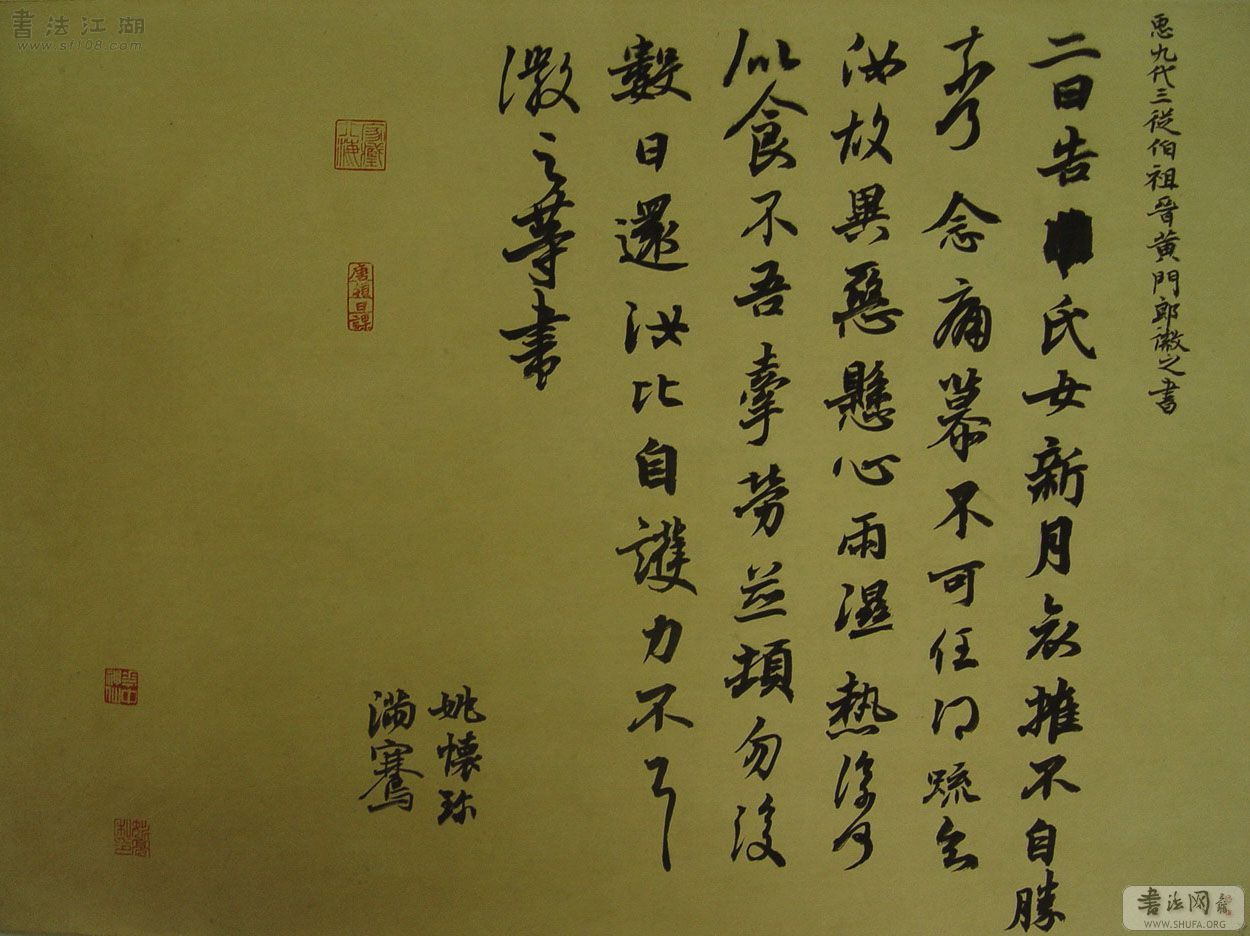 九代三從伯祖晉黃門郎徽之書
二日告氏女新月哀摧不自勝
奈何念痛慕不可任得疏知
汝故異惡懸心雨濕熱復何
似食不吾牽勞並頓勿復
數日還汝比自護力不
徽之等書
姚懷珍
滿騫
書法江湖
www.sf108.com
書法网
WWW.SHUFA.ORG